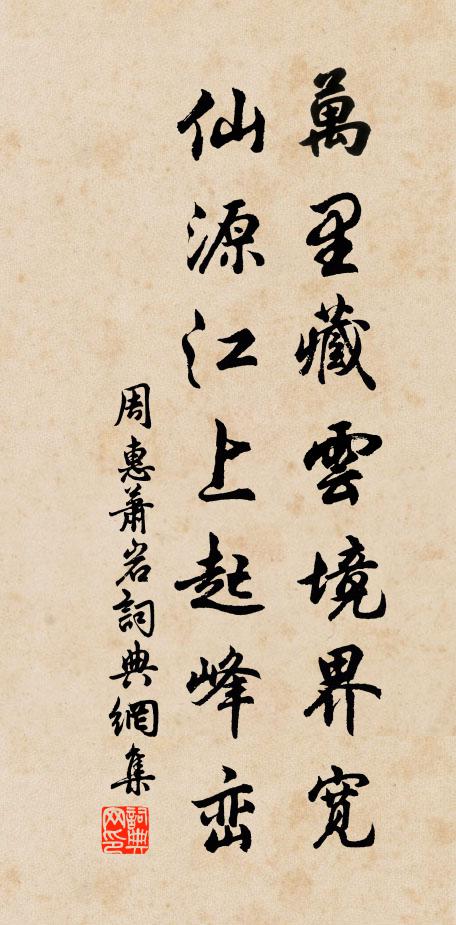 萬里藏雲境界寬
仙源江上起峰峦
周惠蕭岩詞典網集
詞典网印